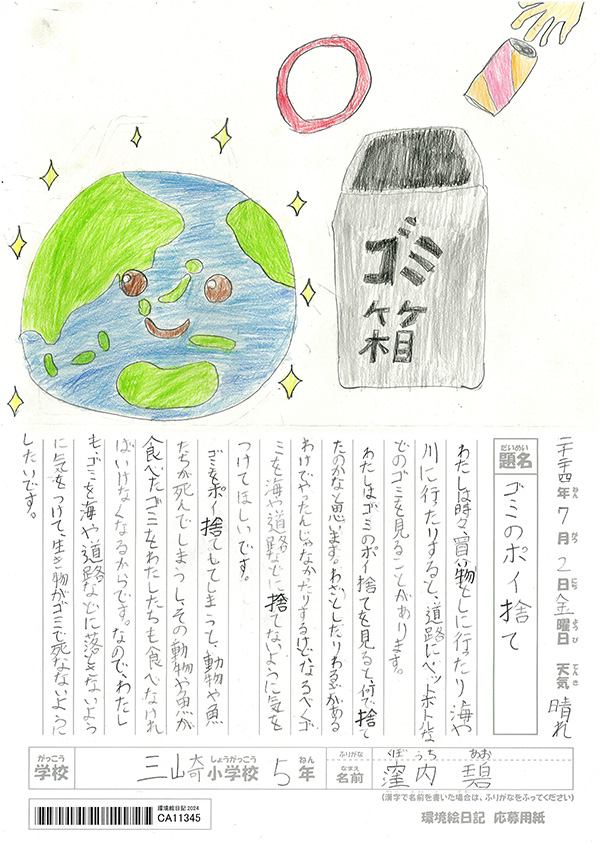 ゴミ
箱
二〇二四年 7月 2日 金曜日 天気 晴れ
ねん がつ にち ようび てんき
だいめい
題名 ゴミのポイ捨て
わたしは時々、買い物とかに行たり海や
川に行たりすると、道路にペットボトルな
どのゴミを見ることがあります。
わたしはゴミのポイ捨てを見ると、何で捨て
たのかなと思います。わざとしたりわるぎがある
わけでやったんじゃなかったりするけど、なるべくゴ
ミを海や道路などに捨てないように気を
つけてほしいです。
ゴミをポイ捨てもてしまうと、動物や魚
たちが死んでしまうし、その動物や魚が
食べたゴミをわたしたちも食べなけれ
ばいけなくなるからです。なので、わたし
も、ゴミを海や道路などに落とさないよう
に気をつけて、生き物がゴミで死なないように
したいです。
がっこう しょうがっこう ねん
学校 三崎小学校 5年
ふりがな くぼうち あお
なまえ
名前 窪内 碧
(漢字で名前を書いた場合は、ふりがなをふってください)
環境絵日記 2024
CA11345
環境絵日記 応募用紙